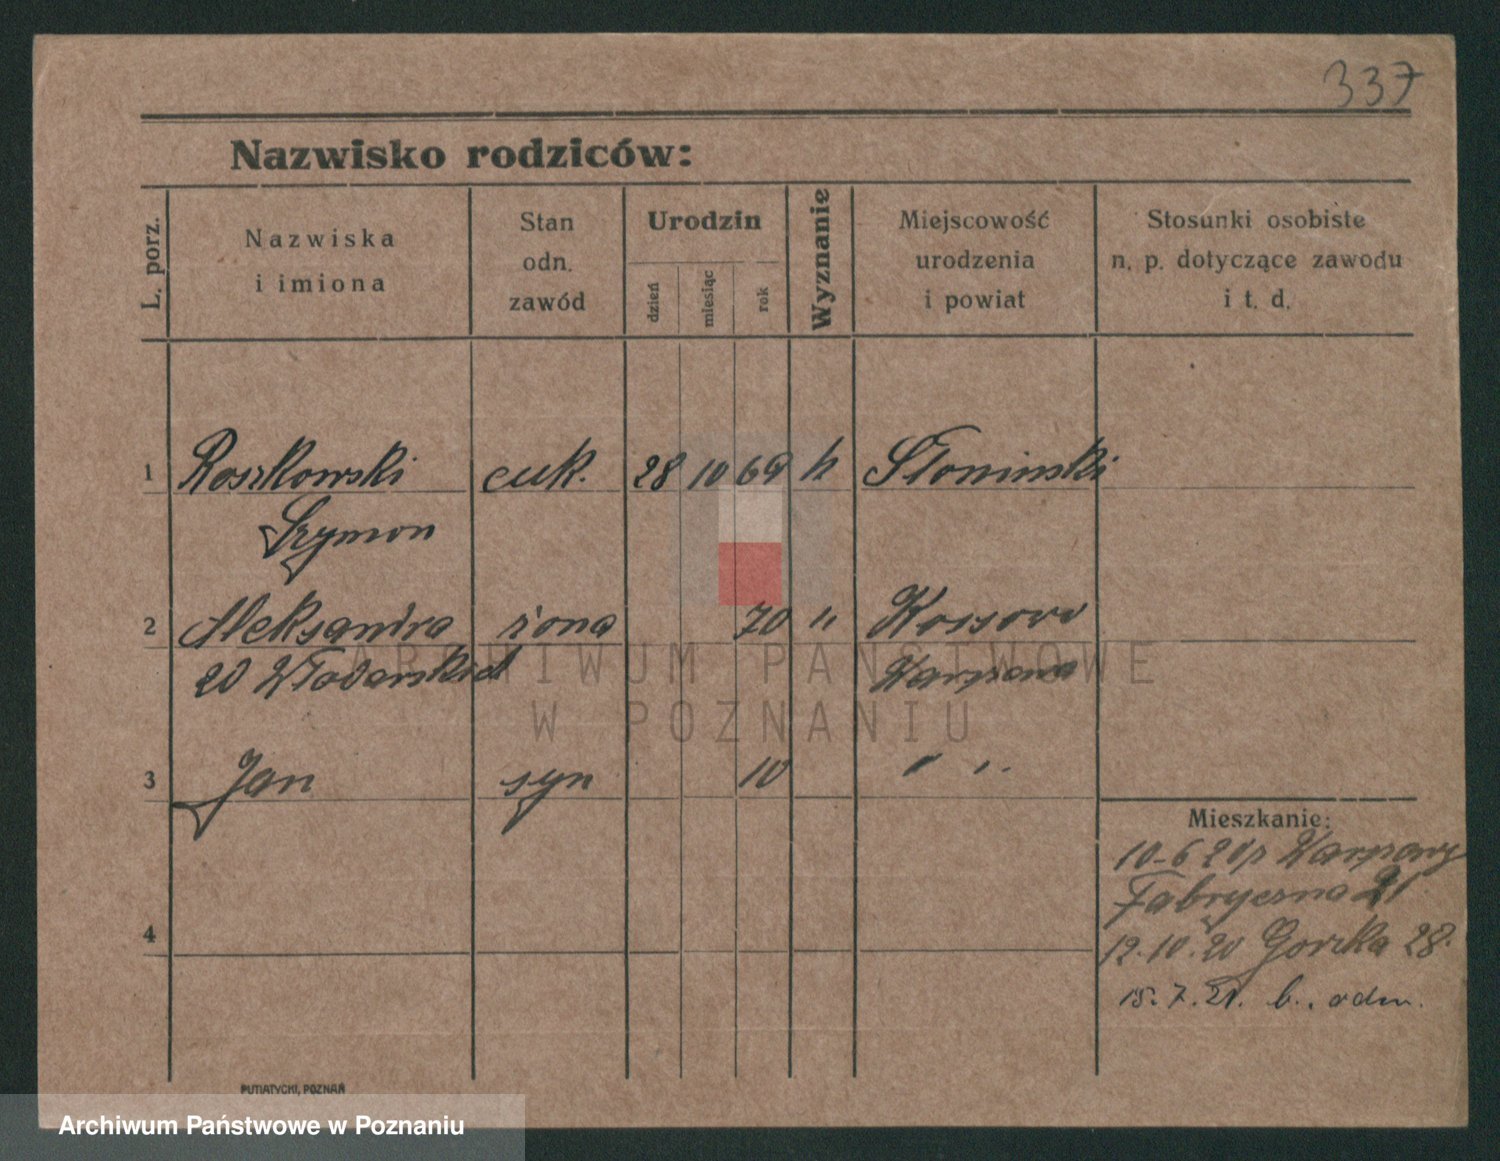 337
Nazwisko rodziców:
L. porz.
Nazwiska
i imiona
Stan
odn.
zawód
Urodzin
dzień
miesiąc
rok
Wyznanie
Miejscowość
urodzenia
i powiat
Stosunki osobiste
n. p. dotyczące zawodu
i t. d.
1 Roszkowski cuk. 28 10 69 k Słonimski
Szymon
2 Aleksandra żona 70 " Kossovo
Warszawa
3 Jan syn 10 " "
4
Mieszkanie:
10-6 20 Warszawy
Fabryczna 21
12.10.20 Gorzka 28.
15.7.21. b. odm.
PUTIATYCKI, POZNAŃ
ARCHIWUM PAŃSTWOWE
W POZNANIU
Archiwum Państwowe w Poznaniu